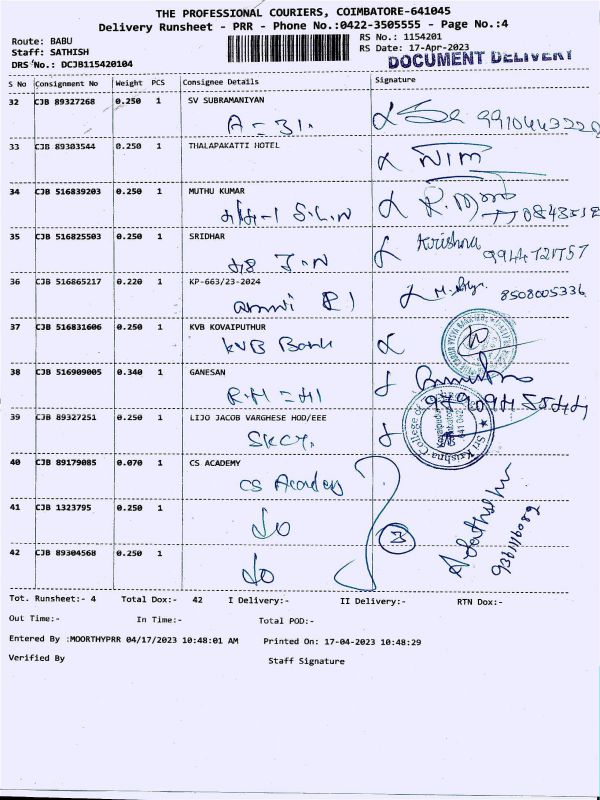 THE PROFESSIONAL COURIERS, COIMBATORE-641045
Delivery Runsheet - PRR - Phone No.:0422-3505555 - Page No.:4
Route: BABU
RS No.: 1154201
Staff: SATHISH
RS Date: 17-Apr-2023
DRS No.: DCJB115420104
DOCUMENT DELIVERY
S No Consignment No Weight PCS Consignee Details Signature
32 CJB 89327268 0.250 1 SV SUBRAMANIYAN
A = 31.
33 CJB 89303544 0.250 1 THALAPAKATTI HOTEL
34 CJB 516839203 0.250 1 MUTHU KUMAR
S.L.N
35 CJB 516825503 0.250 1 SRIDHAR
Krishna
J.N
9944721757
36 CJB 516865217 0.220 1 KP-663/23-2024
8508005336
37 CJB 516831606 0.250 1 KVB KOVAIPUTHUR
KVB Bank
38 CJB 516909005 0.340 1 GANESAN
39 CJB 89327251 0.250 1 LIJO JACOB VARGHESE HOD/EEE
SKCT.
Sri Krishna College of
40 CJB 89179085 0.070 1 CS ACADEMY
CS Academy
41 CJB 1323795 0.250 1
Do
3
42 CJB 89304568 0.250 1
Do
Tot. Runsheet:- 4 Total Dox:- 42 I Delivery:- II Delivery:- RTN Dox:-
Out Time:- In Time:- Total POD:-
Entered By :MOORTHYPRR 04/17/2023 10:48:01 AM Printed On: 17-04-2023 10:48:29
Verified By Staff Signature